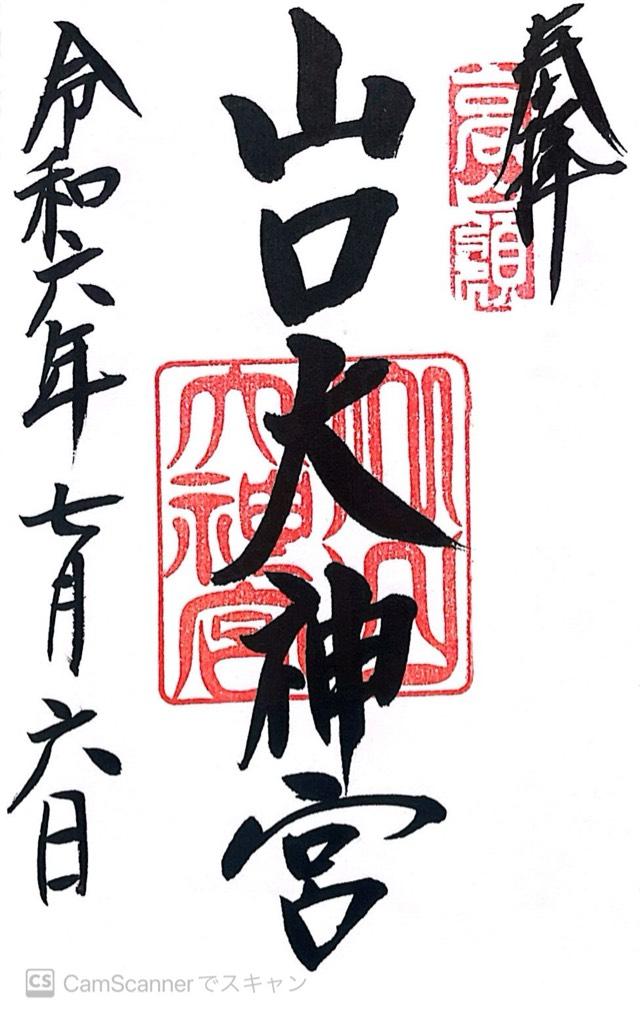 奉拝
高嶺
山口大神宮
山口
大神宮
令和六年七月六日
CS CamScannerでスキャン